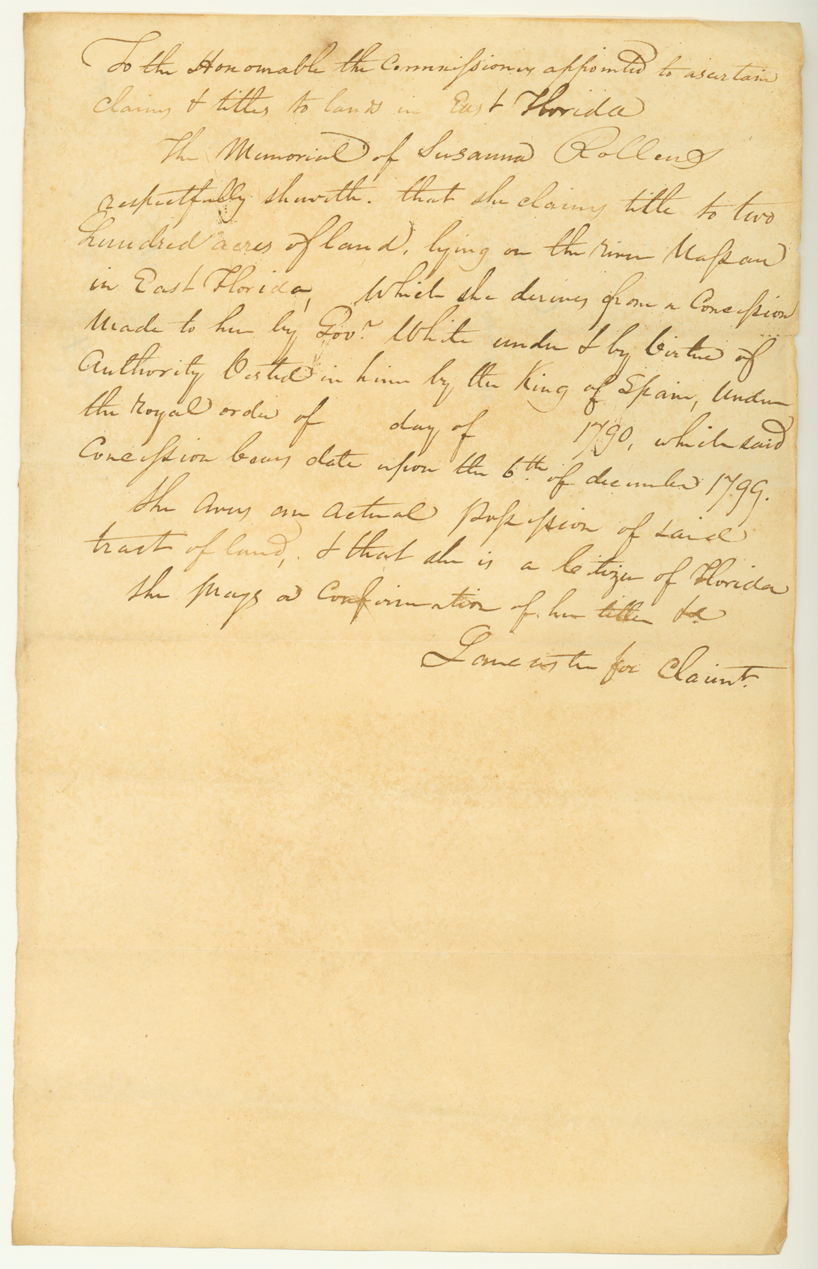 To the Honourable the Commissioners appointed to ascertain
claims & titles to lands in East Florida
The Memorial of Susanna Rollens
respectfully sheweth. that she claims title to two
hundred acres of land, lying on the river Nassau
in East Florida, Which she derives from a Concession
Made to her by Govr. White under & by Virtue of
Authority Vested in him by the King of Spain, Under
the Royal order of day of 1790, which said
Concession bears date upon the 6th of december 1799.
She Avers an Actual possession of said
tract of land, & that she is a Citizen of Florida
She prays a Confirmation of her title &c
Lancaster for Claimt.